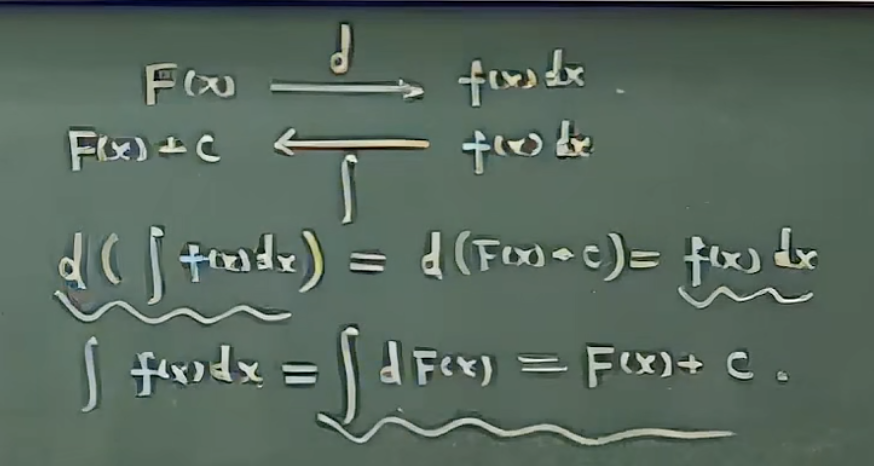 d
F(x) ⟶ f(x) dx .
F(x) + C ⟵ f(x) dx
∫
d ( ∫ f(x) dx ) = d (F(x) + c) = f(x) dx
∫ f(x) dx = ∫ d F(x) = F(x) + C .